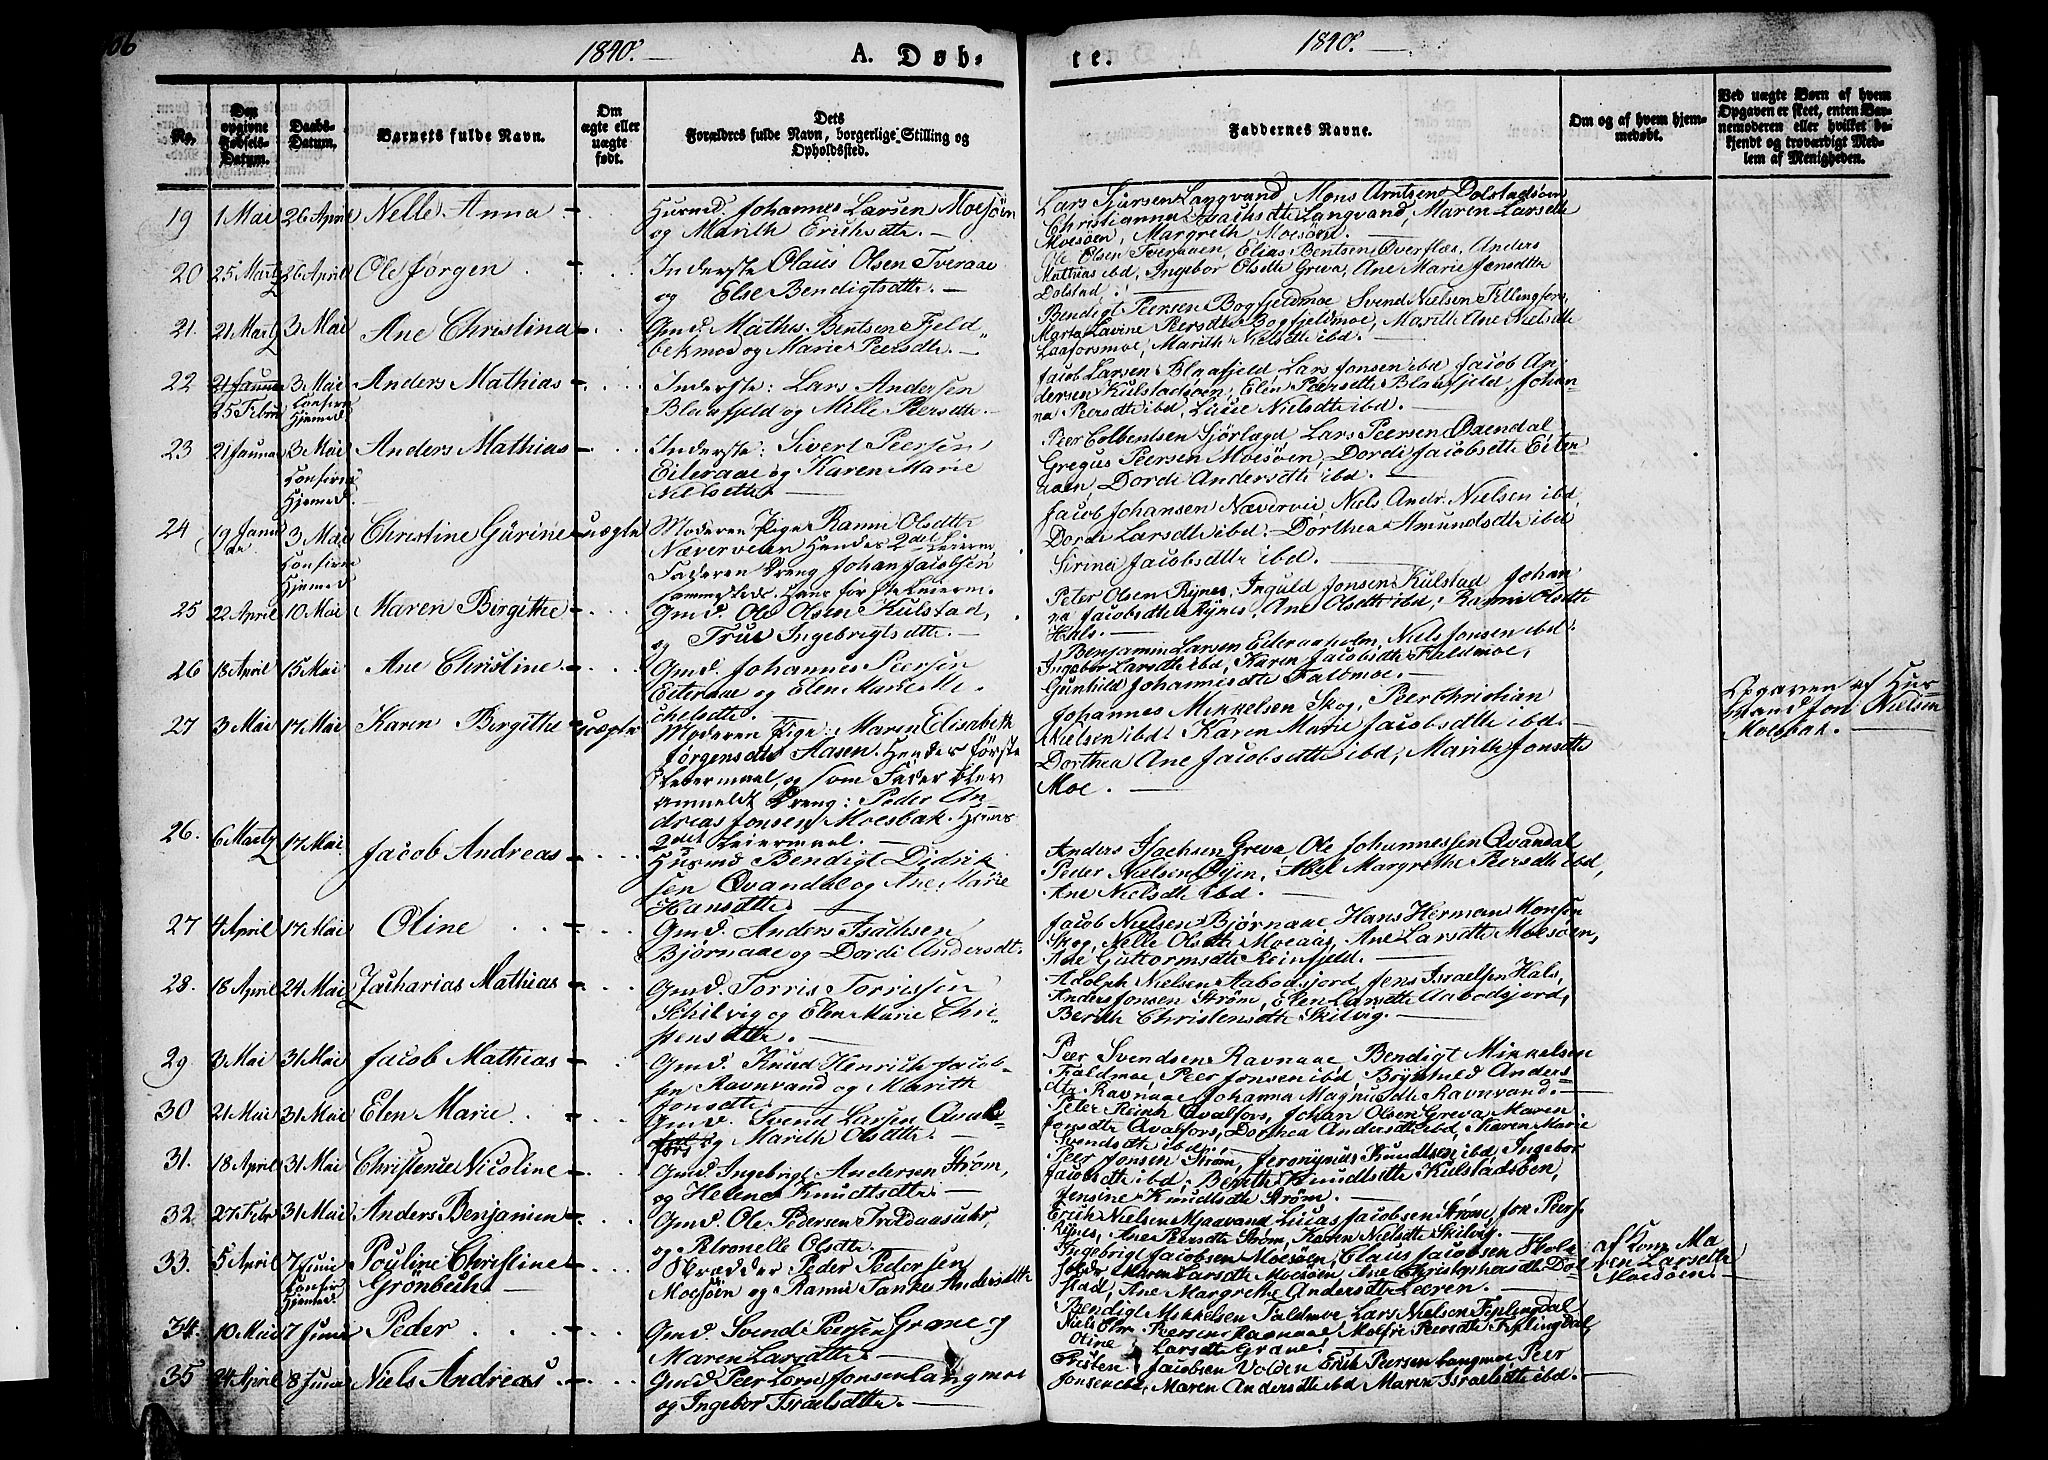 1840.
A. Døb-
te.
1840.
No.
Den opgivne Fødsels-Datum.
Daabs-Datum.
Barnets fulde Navn.
Om ægte eller uægte født.
Dets
Forældres fulde Navn, borgerlige Stilling og
Opholdssted.
Faddernes Navne.
Om og af hvem hjem-
medøbt.
Ved uægte Børn af hvem
Opgaven er skeet, enten Bar-
nemoderen eller hvilket be-
kjendt og troværdigt Med-
lem af Menigheden.
19 1 Mai 26 April Nelle Anna
Husmd. Johannes Larsen Moesøen
og Marith Erichsdtr.
Lars Sjursen Langvand, Mons Arntsen Dolstadsøen
Christianna Langvand, Maren Larsdtr
Moesøen, Margreth Moesøen.
20 25 Martz 26 April Ole Jørgen
Inderste Olaus Olsen Tveraae
og Else Bendigtsdtr.
Ole Olsen Tveraaen, Elias Bentsen Øverflæs, Anders
Mathias ibd, Ingebor Olsdtr Greva, Ane Marie Jensdtr
Dolstad.
21. 21 Martz 3 Mai Ane Christina
Gmd. Mathis Bentsen Fjeld
bekmoe og Marie Peersdtr.
Bendigt Peersen Bogfjeldmoe, Svend Nielsen Fellingfors,
Marta Lavine Peersdtr Bogfjeldmoe, Marith Ane Nielsdtr
Laaforsmoe, Marith Nielsdtr ibd.
22 25 Febru 3 Mai Confirm Hjemmed. Anders Mathias
Inderste: Lars Andersen
Blaafjeld og Mille Peersdtr.
Jacob Larsen Blaafjeld Lars Jonsen ibd Jacob An
dersen Kulstadsøen, Elen Peersdtr Blaafjeld, Johan
na Peersdtr ibd, Lucie Nielsdtr ibd.
23 21 Januar 3 Mai Confirm Hjemmed. Anders Mathias
Inderste: Sivert Peersen
Eiteraae og Karen Marie
Nielsdtr.
Peer Colbentsen Sjörlægd Lars Peersen Øxendal
Gregus Peersen Moesøen, Dordi Jacobsdtr Eiter
aaen, Dordi Andersdtr ibd.
24 19 Januar 3 Mai Confirm Hjemmed. Christine Gurine uægte
Moderen Pige Rann Olsdtr
Næverveien Hendes 2det Leierm,
Faderen Dreng Johan Jacobsen
sammesteds. Hans første Leierm.
Jacob Johansen Nævervei, Niels Andr. Nielsen ibd
Dordi Larsdtr ibd. Dorthea Amundsdtr ibd
Sirina Jacobsdtr ibd.
25 22 April 10 Mai Maren Birgithe
Gmd. Ole Olsen Kulstad,
og True Ingebrigtsdtr.
Peter Olsen Rynes, Inguld Jonsen Kulstad Johan
na Jacobsdtr Rynes, Ane Olsdtr ibd, Rannie Olsdtr
Hals.
26 18 April 15 Mai Ane Christine
Gmd. Johannes Peersen
Eiteraae og Elen Marie Mi
chelsdtr.
Benjamin Larsen Eiteraaholm, Niels Jonsen ibd.
Ingebor Larsdtr ibd, Karen Jacobsdtr Faldmoe,
Gunhild Johannisdtr Faldmoe.
27 3 Mai 17 Mai Karen Birgithe uægte
Moderen Pige: Maren Elisabeth
Jørgensdtr Aasen. Hendes første
Leiermaal, og som Fader blev
anmeldt Dreng: Peder An
dreas Jonsen Moesbak. Hans
2det Leiermaal.
Johannes Mikkelsen Skog, Peer Christian
Nielsen ibd. Karen Marie Jacobsdtr ibd.
Dorthea Ane Jacobsdtr ibd, Marith Jonsdtr
Moe.
Opgaven af Hus-
mand Jon Nielsen
Moesbak.
26. 6 Martz 17 Mai Jacob Andreas
Husmd Bendigt Didrik
sen Qvandal og Ane Marie
Hansdtr.
Anders Isachsen Greva, Ole Johannessen Qvandal
Peder Nielsen Øijen, Abel Margrethe Peersdtr ibd,
Ane Nielsdtr ibd.
27 4 April 17 Mai Oline
Gmd. Anders Isachsen
Bjørnaae og Dordi Andersdtr.
Jacob Nielsen Bjørnaae Hans Herman Monsen
Skog, Nelle Olsdtr Moeaas, Ane Larsdtr Moesøen,
Ane Guttormsdtr Reinfjeld.
28. 18 April 24 Mai Zacharias Mathias
Gmd. Torris Torrissen
Schilvig og Elen Marie Chri
stensdtr.
Adolph Nielsen Aabodsjord, Jens Israelsen Hals,
Anders Jonsen Strøm, Elen Larsdtr Aabodsjord,
Berith Christensdtr Skilvig.
29 3 Mai 31 Mai Jacob Mathias
Gmd. Knud Henrich Jacob-
sen Ravnvand og Marith
Jonsdtr.
Peer Svendsen Ravnaae, Bendigt Mikkelsen
Faldmoe, Peer Jonsen ibd, Brynhild Anders-
dtr Ravnaae Johanna Magnusdtr Ravnvand.
30 21 Mai 31 Mai Elen Marie
Gmd. Svend Larsen Qval-
fors og Marith Olsdtr.
Peter Reinh Qvalfors, Johan Olsen Greva, Maren
Jonsdtr Qvalfors, Dorthea Andersdtr ibd, Karen Marie
Svendsdtr ibd.
31. 18 April 31 Mai Christense Nicoline
Gmd Ingebrigt Andersen Strøm,
og Helene Knudtsdtr.
Peer Jonsen Strøm, Jeronymus Knudtsen ibd, Ingebor
Jacobsdtr ibd, Berith Knudtsdtr Kulstadsøen,
Jensine Knudtsdtr Strøm.
32. 27 Febr 31 Mai Anders Benjamin
Gmd. Ole Pedersen
og Petronelle Olsdtr.
Erich Nielsen Mjaavand Lucas Jacobsen Strøm, Jon Peers
Rynes, Ane Peersdtr Strøm, Karen Nielsdtr Skilvig.
33. 5 April 7 Juni Confir Hjemmed. Pouline Christine
Grönbech.
Skrædder Peder Pedersen
Moesøen og Rannie Tanke Andersdtr
Ingebrigt Jacobsen Moesøen, Claus Jacobsen
Maren Larsdtr Moesøen, Ane Christophersdtr Dol
stad, Ane Margrethe Andersdtr Leeren.
af Kone Ma
ren Larsdtr
Moesøen.
34. 10 Mai 7 Juni Peder
Gmd. Svend Peersen Grane og
Maren Larsdtr.
Bendigt Mikkelsen Faldmoe Lars Nielsen Fiplingdal
Niels Peersen Ravnaae, Peersdtr Fiplingdal,
Oline Larsdtr Grane.
35 24 April 8 Juni Niels Andreas
Gmd Peer Jonsen Langmoe
og Ingebor Israelsdtr.
Jacobsen Volden Erich Peersen Langmoe Peer
Jonsen ibd, Maren Andersdtr ibd Maren Israelsdtr ibd.